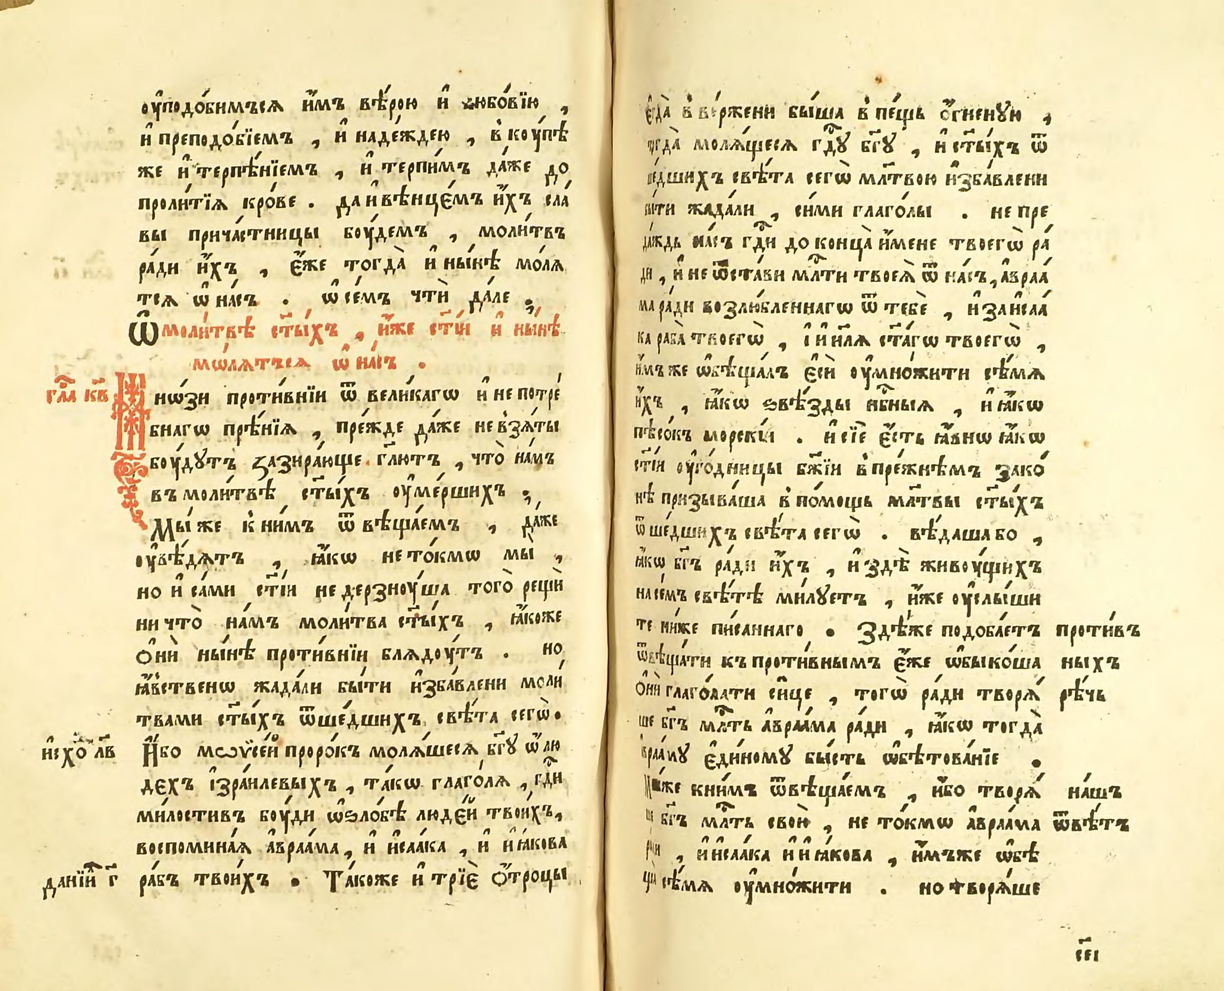 оу҆подо́бимъсѧ и҆̀мъ вѣ́рою и҆ любо́вїю ,
и҆ преподо́бїемъ , и҆ наде́ждею , в̾коу́пѣ
же и҆ терпѣ́нїемъ , и҆ терпи́мъ да́же до
проли́тїѧ кро́ве . да и҆ вѣнце́мъ и҆́хъ сла́
вы прича́стницы боу́демъ , моли́твъ
ра́ди и҆́хъ , є҆́же тогда̀ и҆ ны́нѣ мо́лѧ
тсѧ ѡ҆ на́съ . ѡ҆ се́мъ чтѝ да́ле ,
Ѡ҆ моли́твѣ ст҃ы́хъ , и҆́же ст҃і́и и҆ ны́нѣ
мо́лѧтъсѧ ѡ҆ на́съ .
гла҃ кв҃
Мно́зи проти́внїи ѿ вели́кагѡ и҆ непотре́
бнагѡ прѣ́нїѧ , пре́жде да́же не в̾зѧ́ты
боу́дутъ зазира́юще гл҃ютъ , что̀ на́мъ
въ моли́твѣ ст҃ы́хъ оу҆ме́ршихъ ;
Мы́ же к̾ ни́мъ ѿвѣща́емъ , да́же
оу҆вѣ́дѧтъ , ꙗ҆́кѡ не то́кмѡ мы̀ ,
но и҆ са́ми ст҃і́и не дерзноу́ша того̀ рещѝ
ничто̀ на́мъ моли́тва ст҃ы́хъ , ꙗ҆́коже
ѻ҆нѝ ны́нѣ проти́внїи блѧдоу́тъ . но
ꙗ҆́вственѡ жада́ли бы́ти и҆зба́влени моли́
твами ст҃ы́хъ ѿше́дшихъ свѣ́та сегѡ̀.
и҆схо́ лв҃
И҆́бо мѡѷсе́й проро́къ молѧ́шесѧ бг҃у ѡ҆ лю
дехъ і҆зра́илевыхъ , та́кѡ глаго́лѧ , гдⷭ҇и
ми́лостивъ боу́ди ѡ҆ ѕло́бѣ люде́й твои́хъ,
воспомина́ѧ а҆враа́ма, и҆ и҆саа́ка , и҆ и҆ꙗ́кова
дани́й г҃
ра́бъ твои́хъ . Та́коже и҆ трїѐ ѻ҆́троцы
є҆гда̀ в̾ве́ржени бы́ша в̾ пе́щь ѻ҆́гненꙋю ,
тогда̀ молѧ́щесѧ гдⷭ҇у бг҃у , и҆ ст҃ы́хъ ѿ
ше́дшихъ свѣ́та сегѡ̀ мл҃твою и҆зба́влени
бы́ти жада́ли , си́ми глаго́лы . не пре
да́ждь на́съ гдⷭ҇и до конца̀ и҆́мене твоегѡ̀ ра́
ди , и҆ не ѿста́ви млⷭ҇ти твоеѧ̀ ѿ на́съ, а҆враа́
ма ра́ди возлю́бленнагѡ ѿ тебѐ , и҆ за и҆саа́
ка раба̀ твоегѡ̀ , і҆ и҆и҃лѧ ст҃а́гѡ твоегѡ̀ ,
и҆́мъ же ѡ҆бѣща́лъ є҆сѝ оу҆мно́жити сѣ́мѧ
и҆́хъ , ꙗ҆́кѡ ѕвѣ́зды нбⷭ҇ныѧ , и҆ ꙗ҆́кѡ
пѣсо́къ морскі́и . и҆ сїѐ є҆́сть ꙗ҆́внѡ ꙗ҆́кѡ
ст҃і́и оу҆го́дницы бж҃їи в̾ пре́жнѣмъ зако́
нѣ призыва́ша в̾ по́мощь мл҃твы ст҃ы́хъ
ѿше́дшихъ свѣ́та сегѡ̀ . вѣ́даша бо ,
ꙗ҆́кѡ бг҃ъ ра́ди и҆́хъ , и҆ здѣ̀ живоу́щихъ
на се́мъ свѣ́тѣ ми́лꙋетъ , и҆́же оу҆слы́ши
те ни́же пи́саннаго . Здѣ́ же подоба́етъ
ѿвѣща́ти къ проти́внымъ є҆́же ѡ҆быко́ша
ѻ҆нѝ глаго́лати си́це , тогѡ̀ ра́ди творѧ́
ше бг҃ъ млⷭ҇ть а҆враа́ма ра́ди , ꙗ҆́кѡ тогда̀
а҆враа́мꙋ є҆ди́номꙋ бы́сть ѡ҆бѣтова́нїе .
Мы́ же к̾ни́мъ ѿвѣща́емъ , и҆́бо творѧ́
ше бг҃ъ млⷭ҇ть свою̀ , не то́кмѡ а҆враа́ма
ра́ди , и҆ и҆саа́ка и҆ и҆ꙗ́кова , и҆́мъже ѡ҆бѣ
ща̀ сѣ́мѧ оу҆мно́жити . но творѧ́ше
проти́въ
ныхъ
рѣ́чь
на́шъ
ѿвѣ́тъ
сє҃і